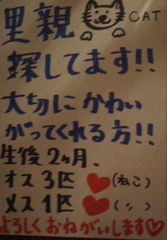 里親
CAT
探してます!!
大切にかわい
がってくれる方!!
生後2ヶ月、
オス3匹 ♥(ねこ)
メス1匹 ♥(〃)
よろしくおねがいします♡